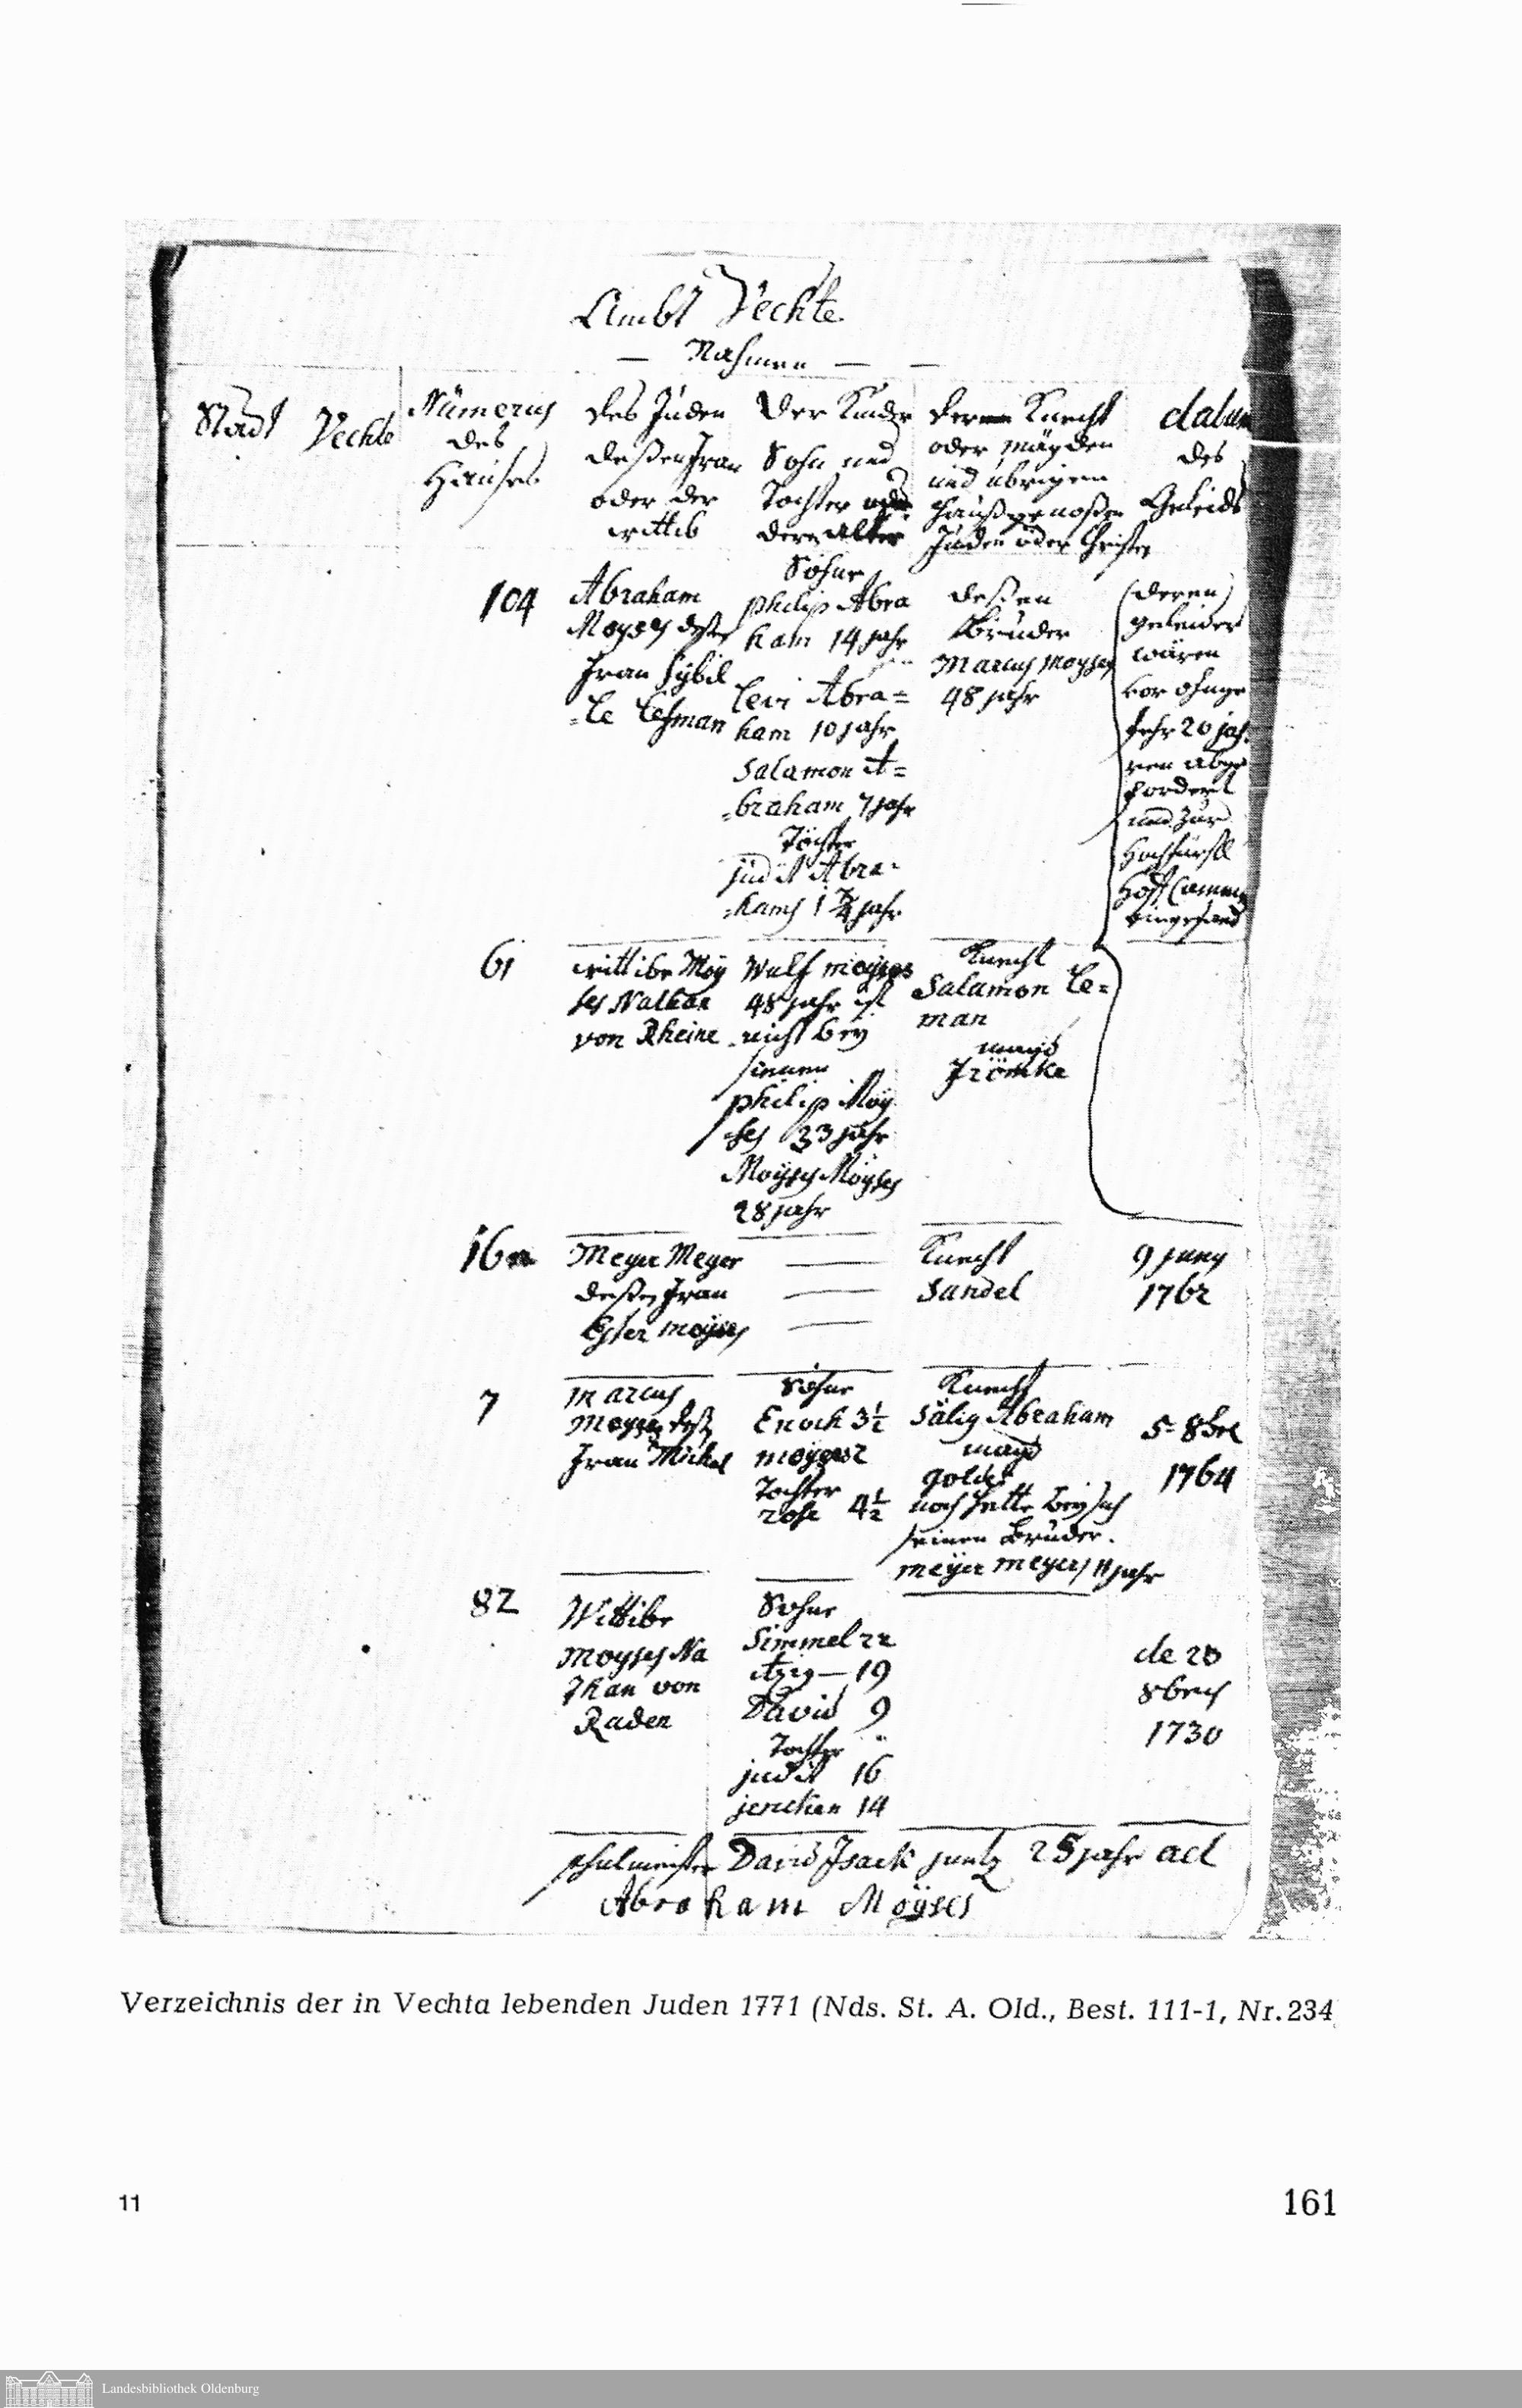 Ambt Vechte
— Nahmen — —
Stadt Vechte
Númerus
des
Hauses
des Júden
deßen Frau
oder der
wittib
der Kinder
Sohn und
Tochter
deren alter
deren Knecht
oder mägden
und übrigen
haußgenoßen
Júden oder Christen
datum
des
Geleids
104
Abraham
Moyses deßen
Frau Sybil
=le Lehman
Söhne
philip Abra
ham 14 jahr
Levi Abra=
ham 10 jahr
Salamon A=
=braham 7 jahr
Töchter
júdit Abra=
=hams 1 3/4 jahr
deßen
Brúder
Marcus Moyses
48 jahr
(deren)
geleider
wären
vor ohnge
fehr 20 jah
ren abge
fordert
und zur
Hochfürstl
Hoff Cammer
eingesand
61
wittibe Moy
ses Nathan
von Rheine
Wulf moyses
48 jahr ist
nicht bey
sinnen
philip Moy
ses 33 jahr
Moyses Moyses
28 jahr
Knecht
Salamon Le=
man
magd
Frömke
16
Meyer Meyer
deßen Frau
Ester moyses
Knecht
Sandel
9 juny
1762
7
Marcus
Moyses deß
Frau Michel
Söhne
Enoch 3 1/2
moyses 2
Tochter
rose 4 1/2
Knecht
Sälig Abraham
magd
Goldes
noch hatte bey sich
seinen Brúder.
meyer meyers 11 jahr
5- 8bre
1764
82
Wittibe
Moyses Na
than von
Raden
Sohne
Simmel 22
Azig — 19
David 9
Tochter
judit 16
jenchen 14
de 20
8bris
1730
schulmeister David Isack 25 jahr ad
Abraham Moyses
Verzeichnis der in Vechta lebenden Juden 1771 (Nds. St. A. Old., Best. 111-1, Nr. 234
11
161
Landesbibliothek Oldenburg